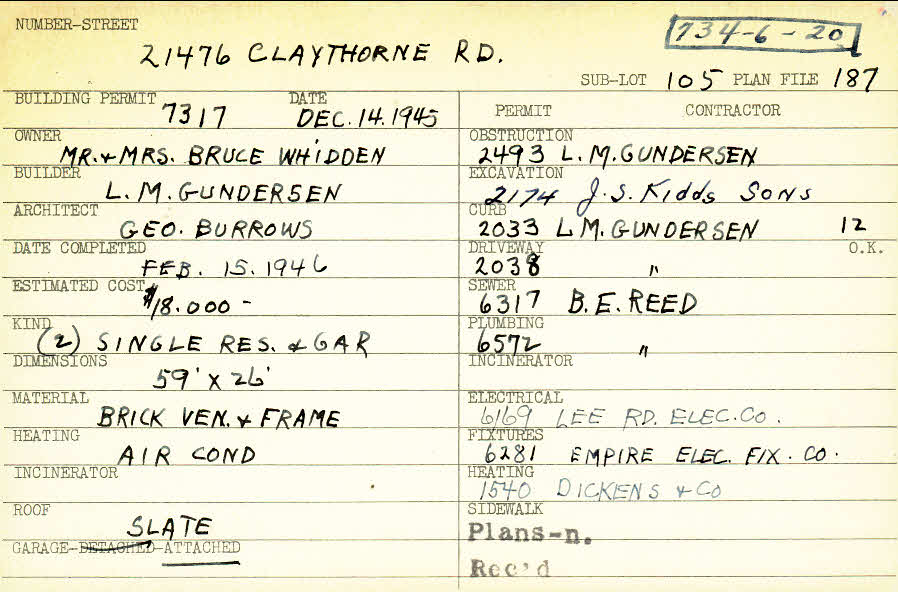 NUMBER-STREET
734-6-20
21476 CLAYTHORNE RD.
SUB-LOT 105 PLAN FILE 187
BUILDING PERMIT DATE
7317 DEC. 14. 1945
OWNER
MR. & MRS. BRUCE WHIDDEN
BUILDER
L. M. GUNDERSEN
ARCHITECT
GEO. BURROWS
DATE COMPLETED
FEB. 15. 1946
ESTIMATED COST
$18.000-
KIND
(2) SINGLE RES. & GAR
DIMENSIONS
59' X 26'
MATERIAL
BRICK VEN. & FRAME
HEATING
AIR COND
INCINERATOR
ROOF
SLATE
GARAGE-DETACHED-ATTACHED
PERMIT CONTRACTOR
OBSTRUCTION
2493 L. M. GUNDERSEN
EXCAVATION
2174 J. S. Kidds Sons
CURB
2033 L. M. GUNDERSEN 12
DRIVEWAY O.K.
2038 "
SEWER
6317 B. E. REED
PLUMBING
6572 "
INCINERATOR
ELECTRICAL
6169 LEE RD. ELEC. CO.
FIXTURES
6281 EMPIRE ELEC. FIX. CO.
HEATING
1540 DICKENS & CO
SIDEWALK
Plans-n.
Rec'd